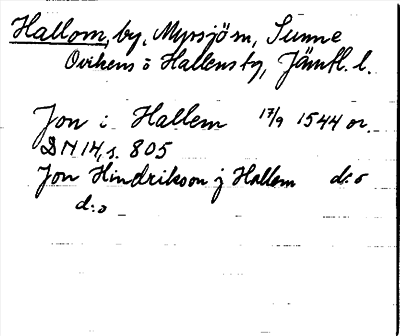 Hallom, by, Myssjö sn, Sunne
Ovikens o Hallens tg, Jämtl. l.
Jon i Hallem 17/9 1544 or.
DN 14, s. 805
Jon Hindrikson j Hallem d:o
d:o